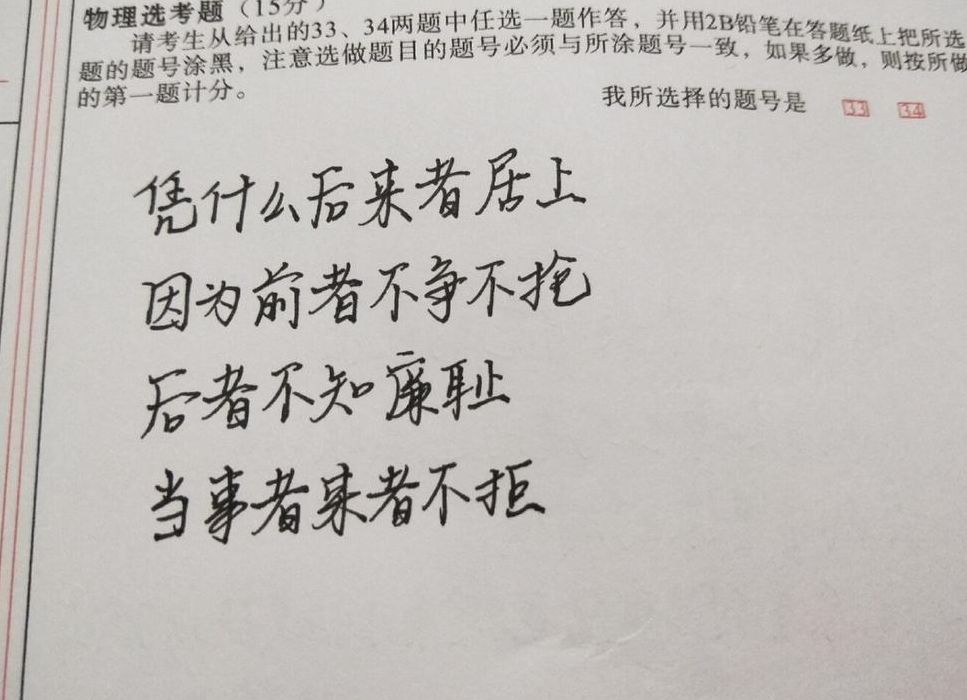 物理选考题（15分）
请考生从给出的33、34两题中任选一题作答，并用2B铅笔在答题纸上把所选
题的题号涂黑，注意选做题目的题号必须与所涂题号一致，如果多做，则按所做
的第一题计分。
我所选择的题号是 33 34
凭什么后来者居上
因为前者不争不抢
后者不知廉耻
当事者来者不拒